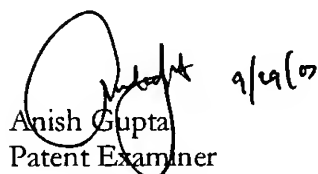 9/29/07
Anish Gupta
Patent Examiner